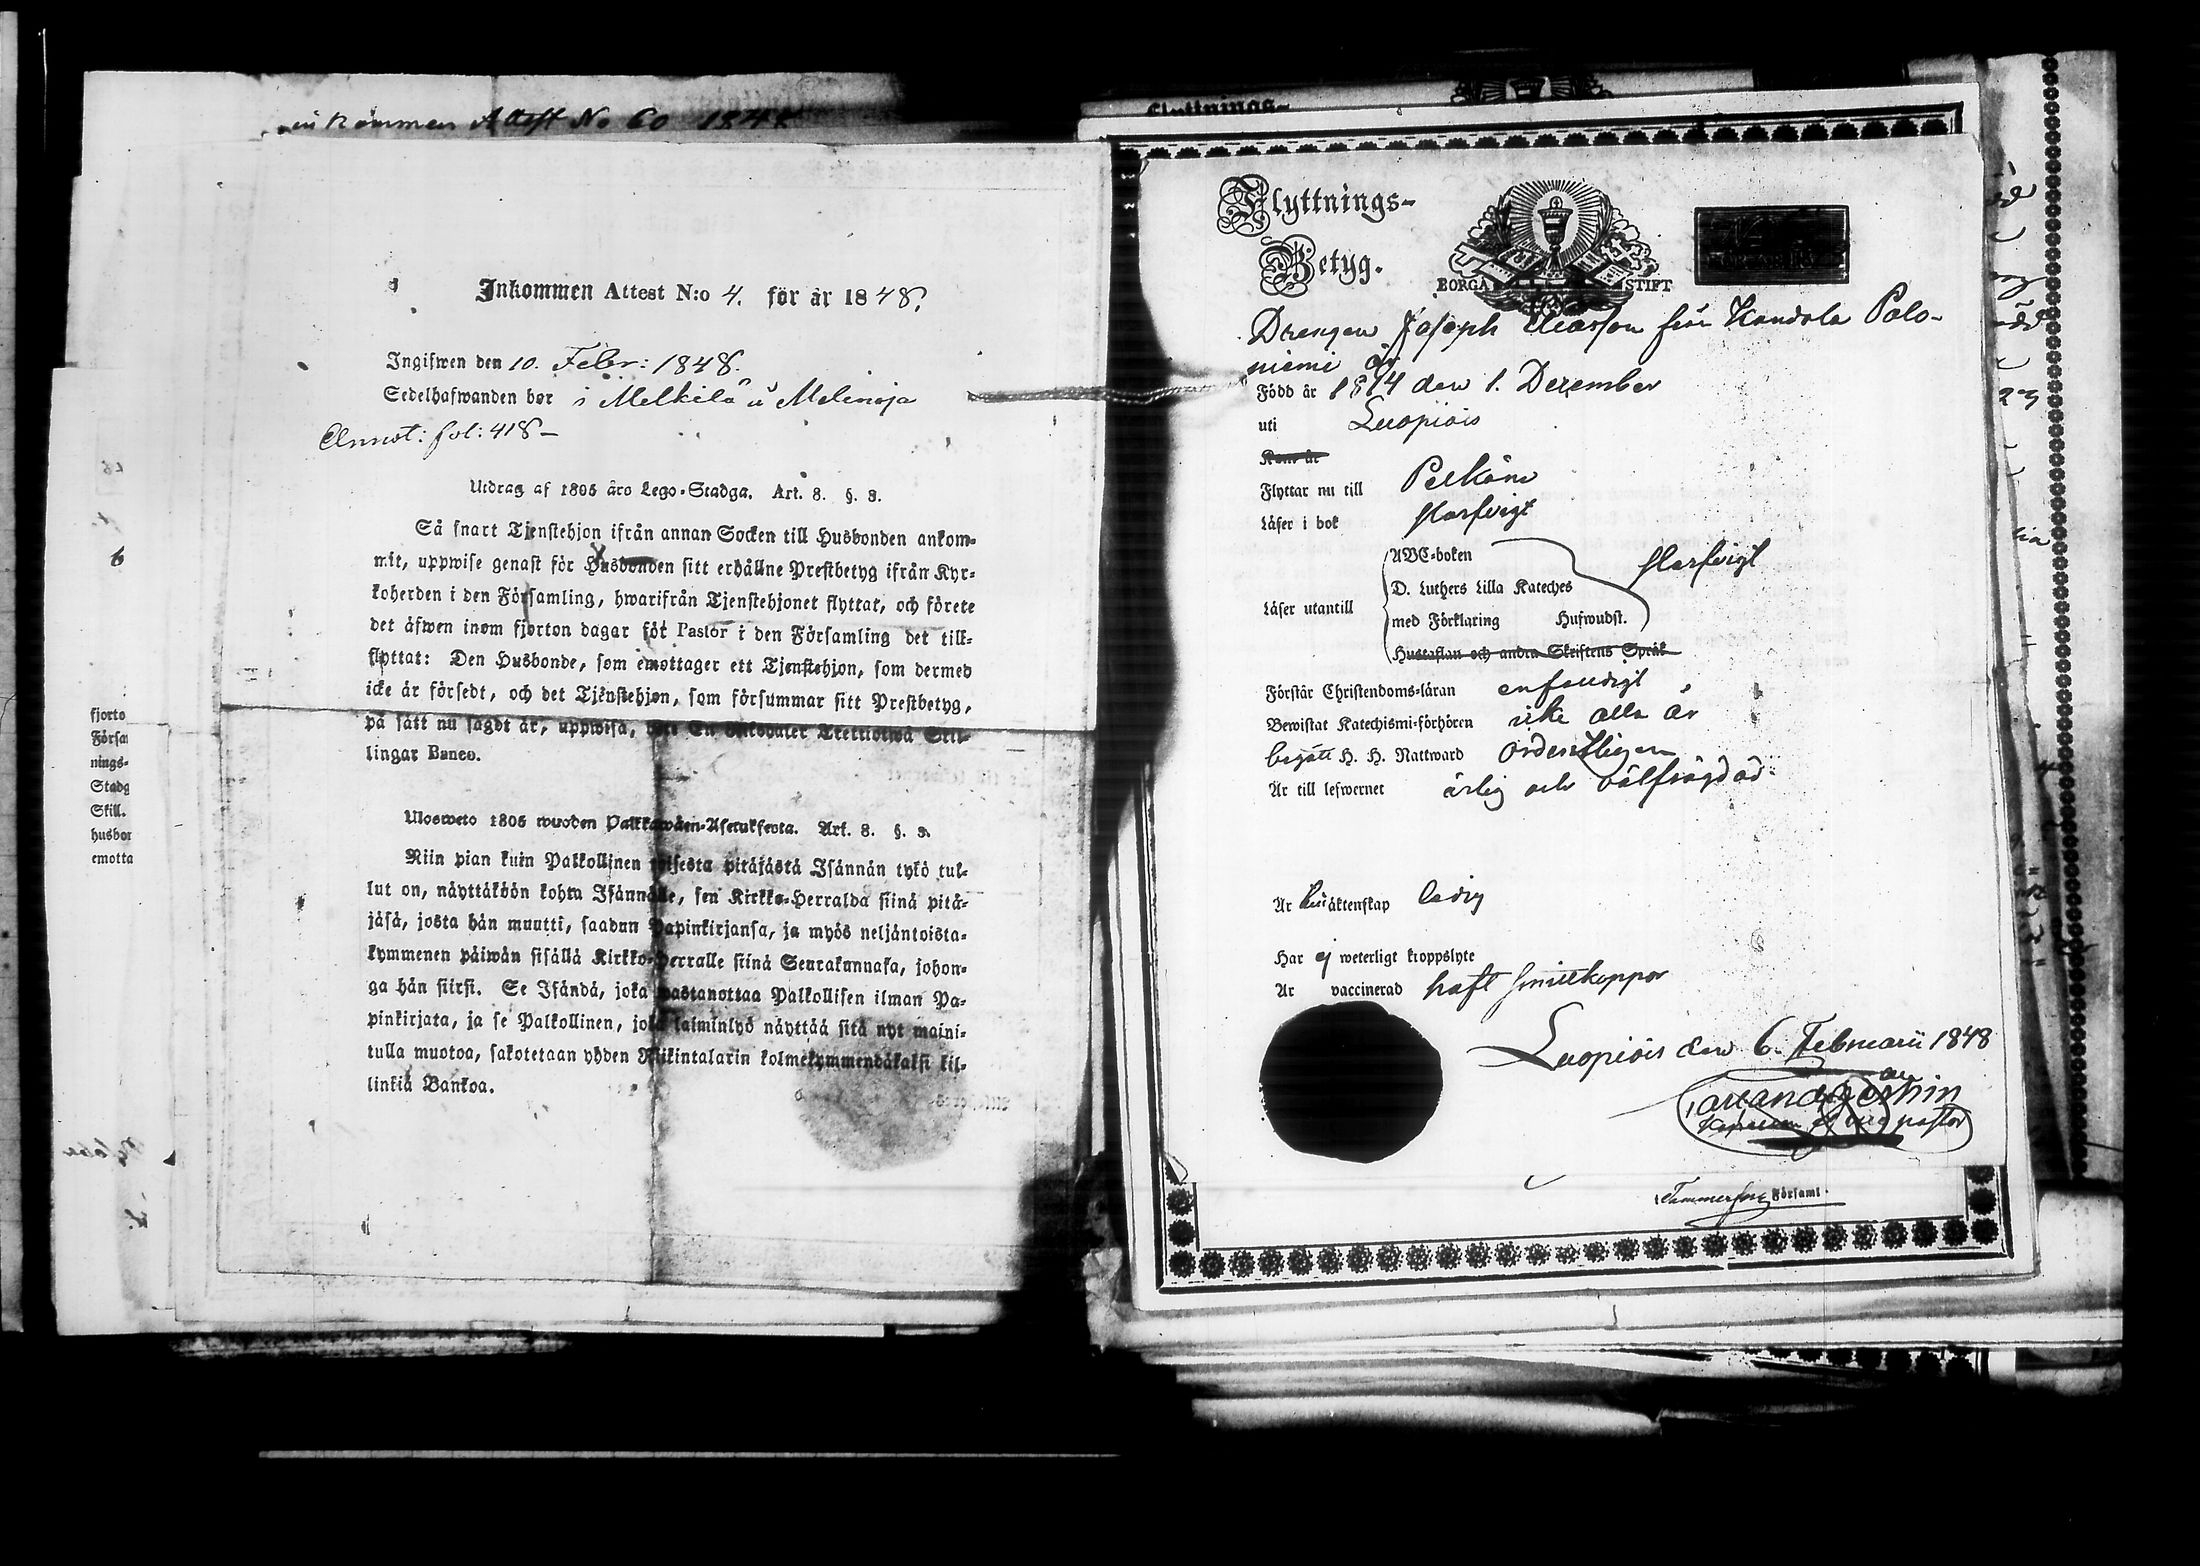 Inkommen Attest No 60 1848
Inkommen Attest N:o 4. för år 1848.
Ingifwen den 10. Febr: 1848.
Sedelhafwanden bor i Melkilä
Annot: fol: 418
Utdrag af 1805 års Lego-Stadga. Art. 8. §. 3.
Så snart Tjenstehjon ifrån annan Socken till Husbonden ankom-
mit, uppwise genast för Husbonden sitt erhållne Prestbetyg ifrån Kyr-
koherden i den Församling, hwarifrån Tjenstehjonet flyttat, och förete
det äfwen inom fjorton dagar för Pastor i den Församling det till-
flyttat: Den Husbonde, som emottager ett Tjenstehjon, som dermed
icke är försedt, och det Tjenstehjon, som försummar sitt Prestbetyg,
på sätt nu sagdt är, uppwisa, En Riksdaler Trettiotwå Skil-
lingar Banco.
Ulosweto 1805 wuoden Palkkawäen-Asetuksesta. Art. 8. §. 3.
Niin pian kuin Palkollinen toisesta pitäjästä Isännän tykö tul-
lut on, näyttäköön kohta Isännälle, sen Kirkko-Herralda siinä pitä-
jäsä, josta hän muutti, saadun Papinkirjansa, ja myös neljäntoista-
kymmenen päiwän sisällä Kirkko-Herralle siinä Seurakunnasa, johon-
ga hän siirsi. Se Isändä, joka wastanottaa Palkollisen ilman Pa-
pinkirjata, ja se Palkollinen, joka laiminlyö näyttää sitä nyt maini-
tulla muotoa, sakotetaan yhden Riikintalarin kolmekymmendäkaksi kil-
linkiä Bankoa.
fjorto
Försa
nings-
Stadg
Skill.
husbor
emotta
Flyttnings-
Flyttnings-
Betyg.
BORGÅ STIFT
Drengen Joseph Eliasson från Kandola Palo-
niemi är
Född år 1814 den 1. December
uti Luopiois
Kom år
Flyttar nu till Pelkäne
Läser i bok
Läser utantill
ABC-boken
D. Luthers Lilla Kateches
med Förklaring Hufwudst.
Hustaflan och andra Skriftens Språk
Förstår Christendoms-läran enfaldigt
Bewistat Katechismi-förhören icke alla år
begått H. H. Nattward ordentligen
Är till lefwernet ärlig och välfrägdad
Är till äktenskap ledig
Har ej weterligt kroppslyte
Är vaccinerad haft smittkoppor
Luopiois den 6. Februarii 1848
Tammerfors Församl.